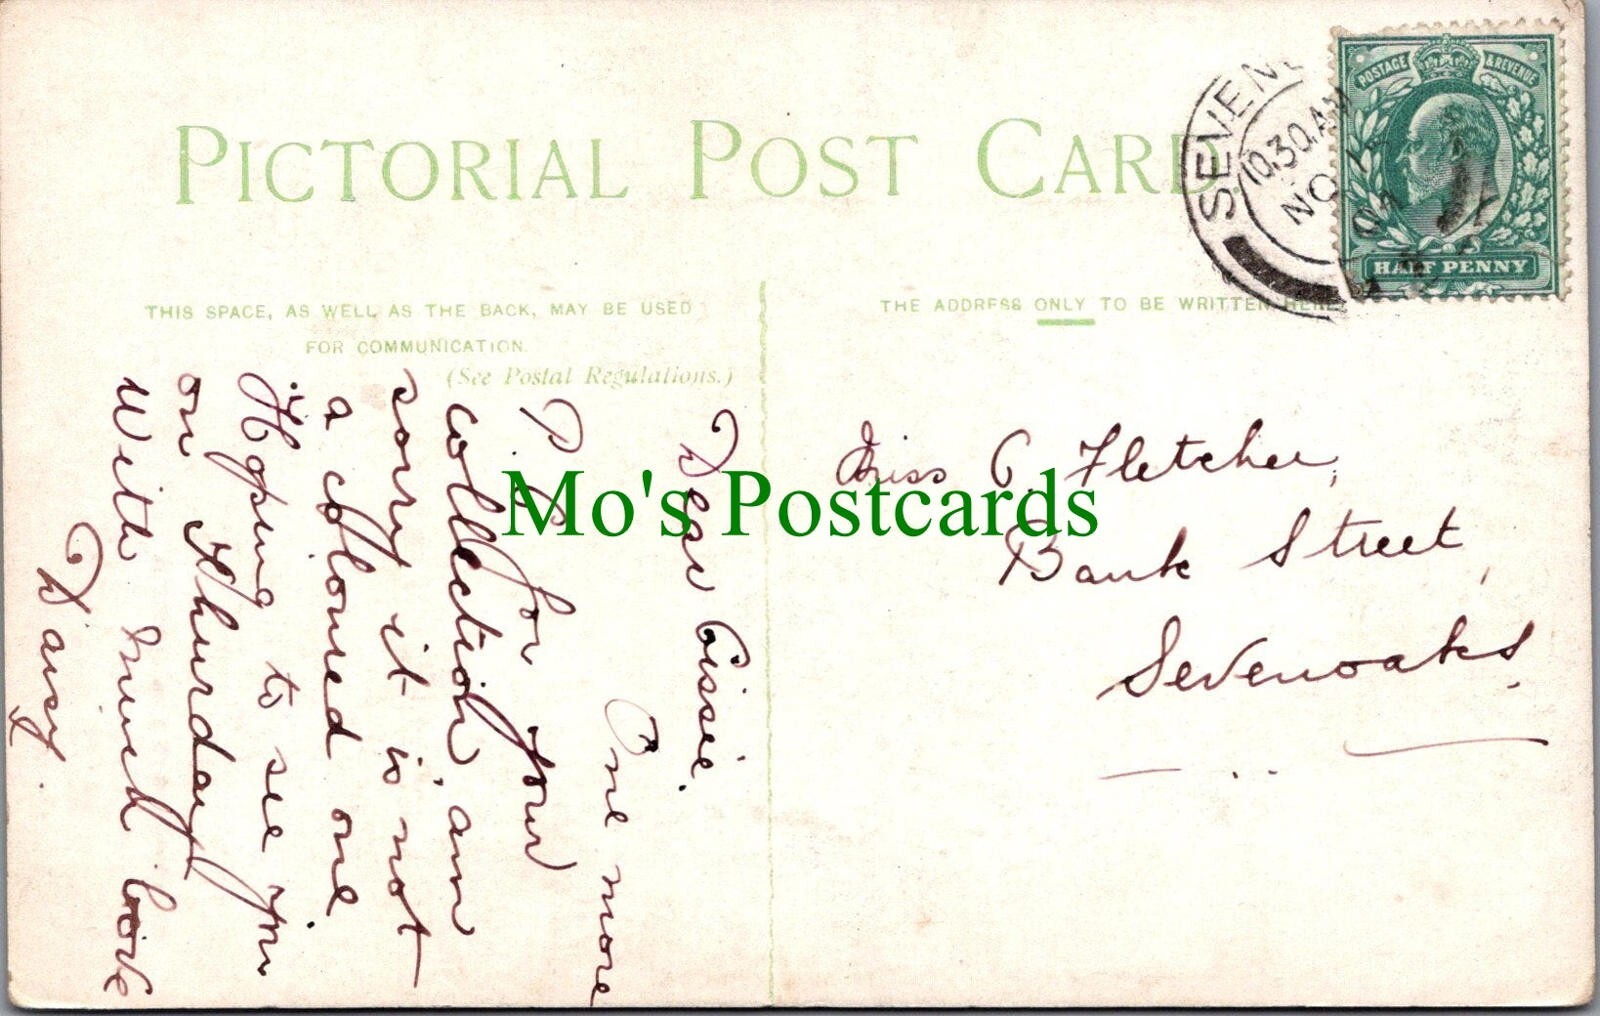 PICTORIAL POST CARD.
THIS SPACE, AS WELL AS THE BACK, MAY BE USED
FOR COMMUNICATION.
(See Postal Regulations.)
THE ADDRESS ONLY TO BE WRITTEN HERE.
SEVEN
10.30 AM
NO 15
POSTAGE & REVENUE
HALF PENNY
Dear Cissie.
One more
P.C. for your
collection, am
sorry it is not
a coloured one.
Hoping to see you
on Thursday
With much love
Daisy.
Miss C. Fletcher,
Bank Street,
Sevenoaks.
Mo's Postcards